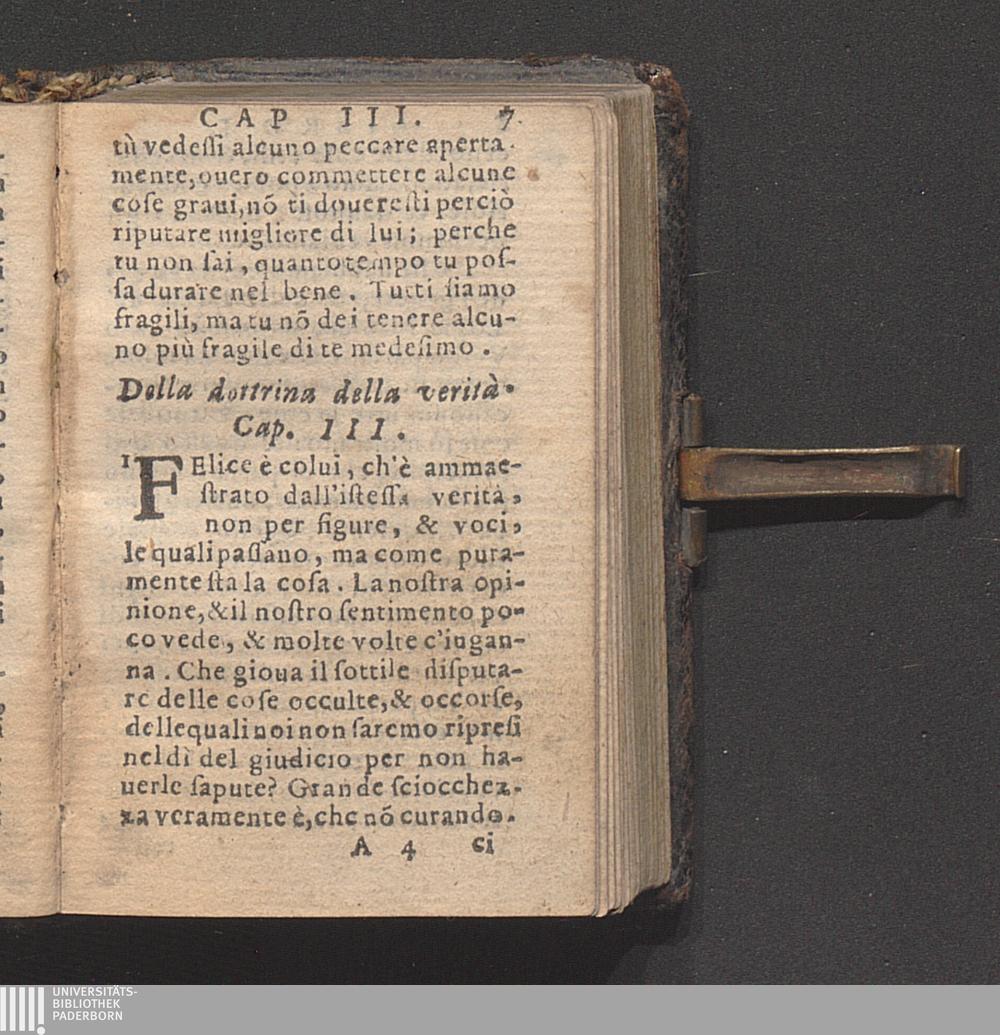 CAP III. 7.
tù vedeſſi alcuno peccare aperta-
mente, ouero commettere alcune
coſe graui, nõ ti doutereſti perciò
riputare migliore di lui; perche
tu non ſai, quanto tempo tu poſ-
ſa durare nel bene. Tutti ſiamo
fragili, ma tu nõ dei tenere alcu-
no più fragile di te medeſimo.
Della dottrina della verità.
Cap. III.
1 FElice è colui, ch'è ammae-
ſtrato dall'iſteſſa verità,
non per figure, & voci,
le quali paſſano, ma come pura-
mente ſta la coſa. La noſtra opi-
nione, & il noſtro ſentimento po-
co vede, & molte volte c'ingan-
na. Che gioua il ſottile diſputa-
re delle coſe occulte, & occorſe,
delle quali noi non ſaremo ripreſi
nel dì del giudicio per non ha-
uerle ſapute? Grande ſciocchez-
za veramente è, che nõ curando.
A 4 ci
UNIVERSITÄTS-
BIBLIOTHEK
PADERBORN